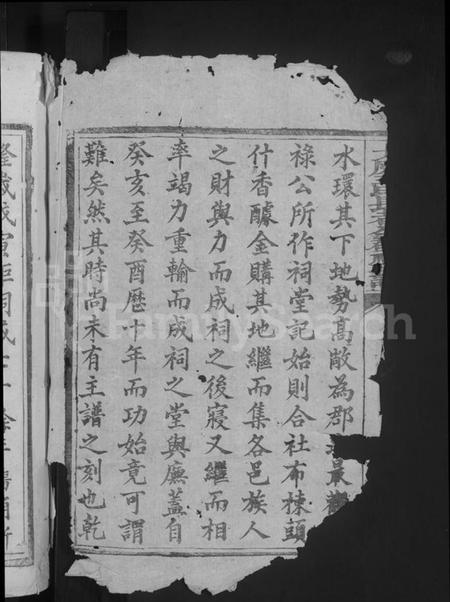 水環其下地勢髙敞為郡最觀
祿公所作祠堂記始則合社布棟頭
什香醵金購其地繼而集各邑族人
之財與力而成祠之後寢又繼而相
率竭力重輸而成祠之堂與廡蓋自
癸亥至癸酉歷十年而功始竟可謂
難矣然其時尚未有主譜之刻也乾
隆歲戊寅距祠成
FamilySearch